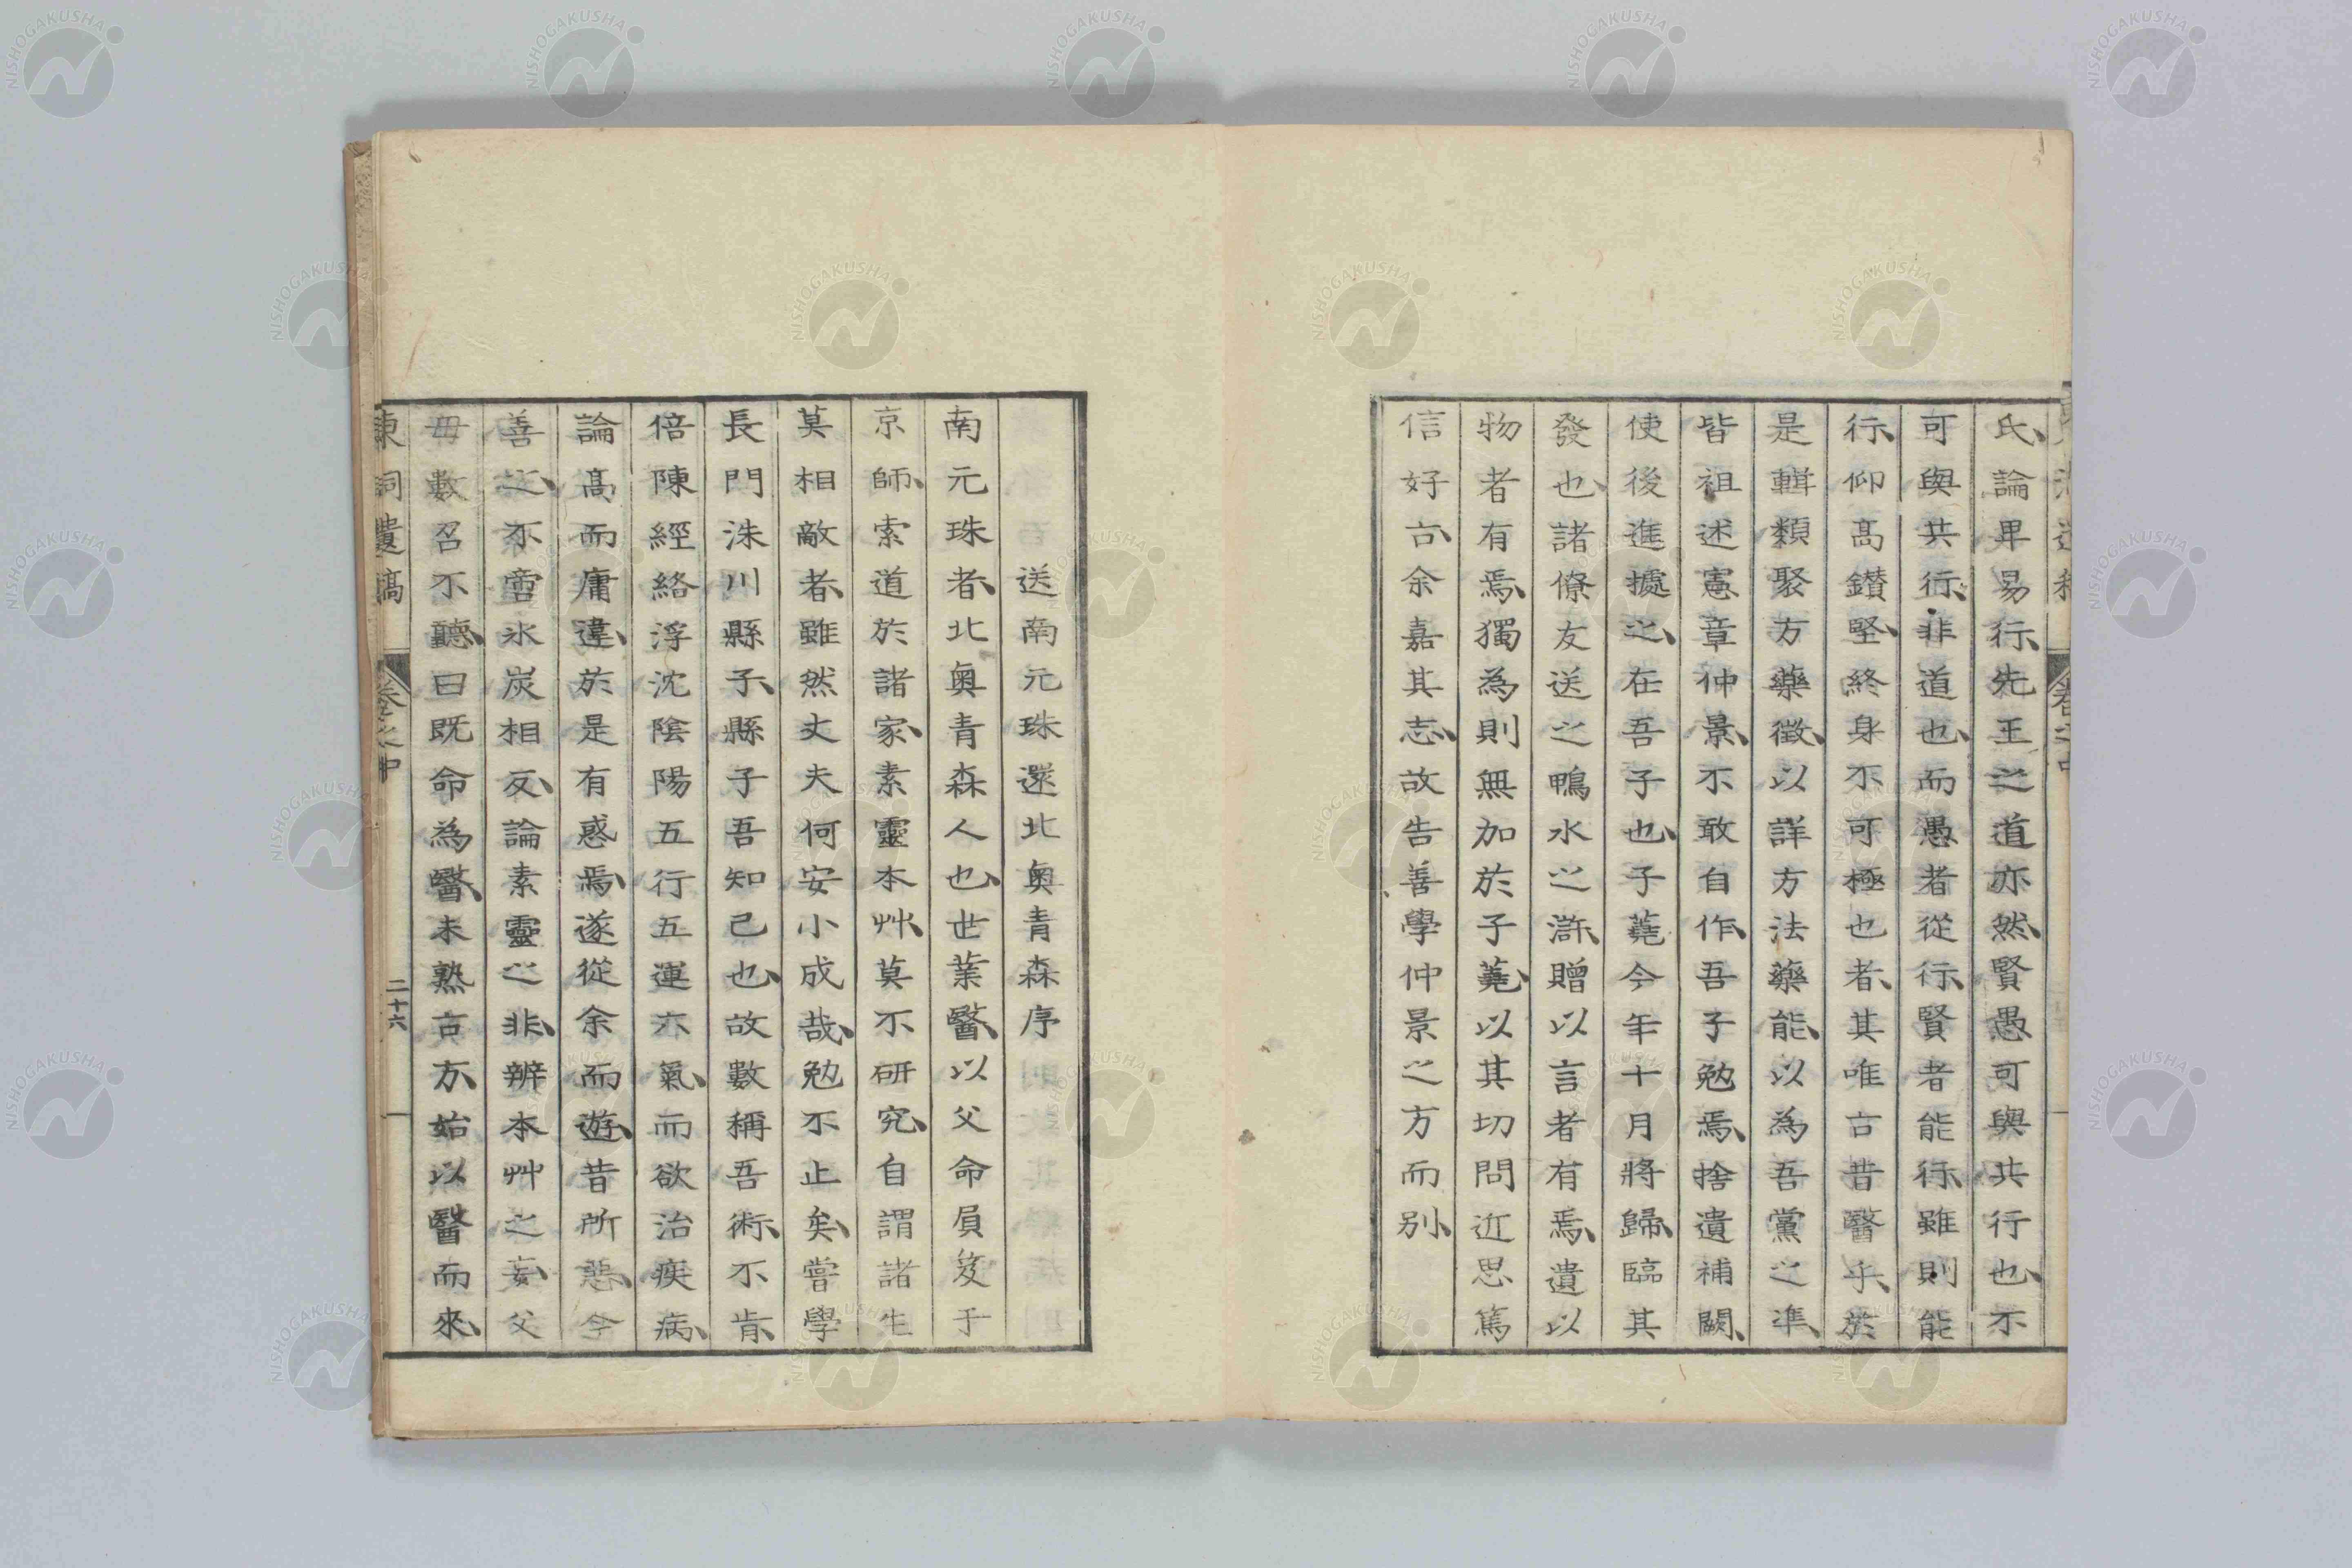 氏、論畢易行、先王之道亦然、賢愚可與共行也、不
可與共行、非道也、而愚者從行、賢者能行、雖則能
行、仰高鑚堅、終身不可極也者、其唯古昔醫乎、於
是輯類聚方藥徵、以詳方法藥能、以為吾黨之準、
皆祖述憲章仲景、不敢自作、吾子勉焉、捨遺補闕、
使後進據之、在吾子也、子蕘今年十月將歸、臨其
發也、諸僚友送之鴨水之滸、贈以言者有焉、遺以
物者有焉、獨為則無加於子蕘、以其切問近思篤
信好古、余嘉其志、故告善學仲景之方而別、
送南元珠還北奧青森序
南元珠者、北奧青森人也、世業醫、以父命負笈于
京師、索道於諸家、素靈本艸、莫不研究、自謂諸生
莫相敵者、雖然丈夫何安小成哉、勉不止矣、嘗學
長門洙川縣子、縣子吾知己也、故數稱吾術、不肯、
倍陳經絡浮沈陰陽五行五運六氣、而欲治疾病、
論高而庸違、於是有惑焉、遂從余而遊、昔所惡、今
善之、不啻氷炭相反、論素靈之非、辨本艸之妄、父
毋數召不聽、曰既命為醫、未熟古方、始以醫而來、
東洞遺稿 卷之中 二十六
NISHOGAKUSHA